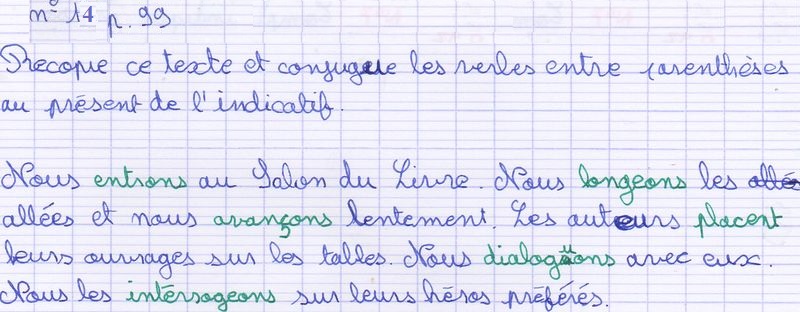 n° 14 p. 99
Recopie ce texte et conjugue les verbes entre parenthèses
au présent de l'indicatif.
Nous entrons au Salon du Livre. Nous longeons les allée
allées et nous avançons lentement. Les auteurs placent
leurs ouvrages sur les tables. Nous dialoguons avec eux.
Nous les intérrogeons sur leurs héros préférés.